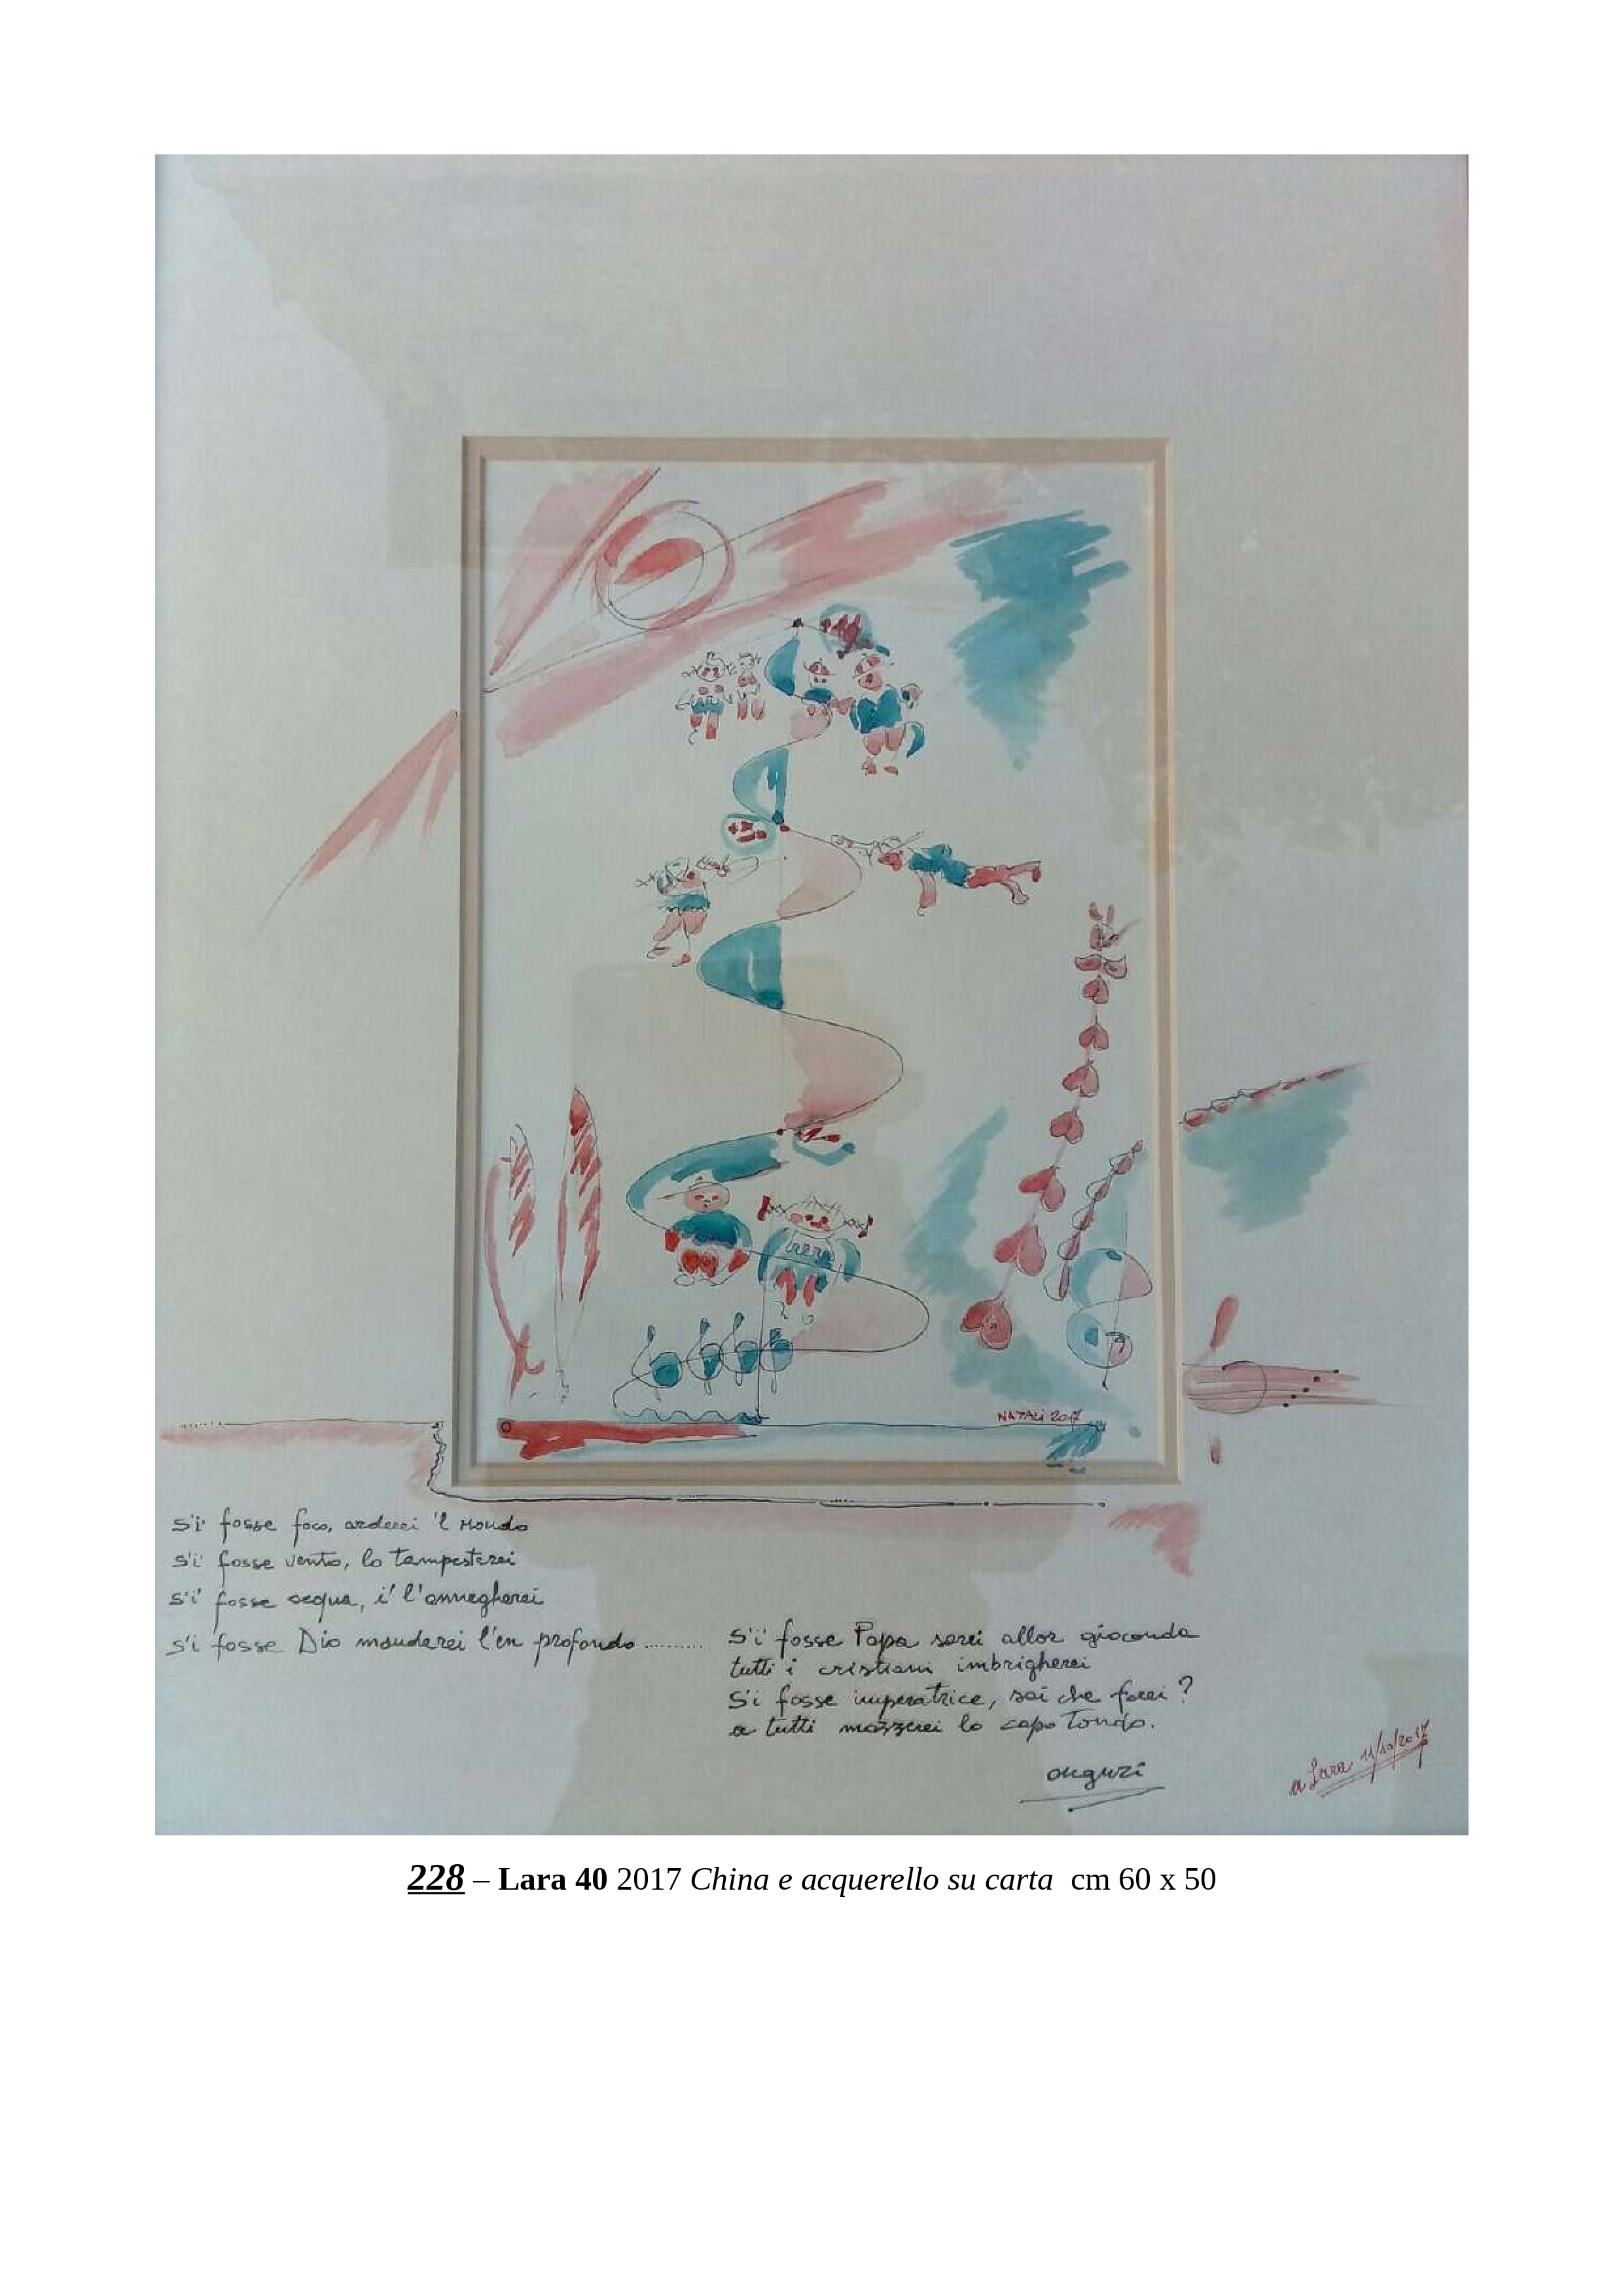 NATALI 2017
S'i' fosse foco, arderei 'l Mondo
S'i' fosse vento, lo tempesterei
S'i' fosse acqua, i' l'annegherei
S'i fosse Dio manderei l'en profondo ..........
S'i' fosse Papa sarei allor gioconda
tutti i cristiani imbrigherei
S'i fosse imperatrice, sai che farei ?
a tutti mozzerei lo capo Tondo.
auguri
a Lara 11/10/2017
228 – Lara 40 2017 China e acquerello su carta cm 60 x 50